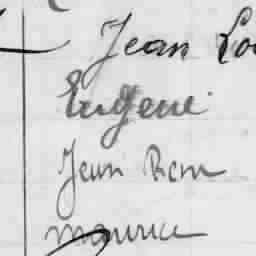 Jean Lou
Eugene
Jean René
Maurice